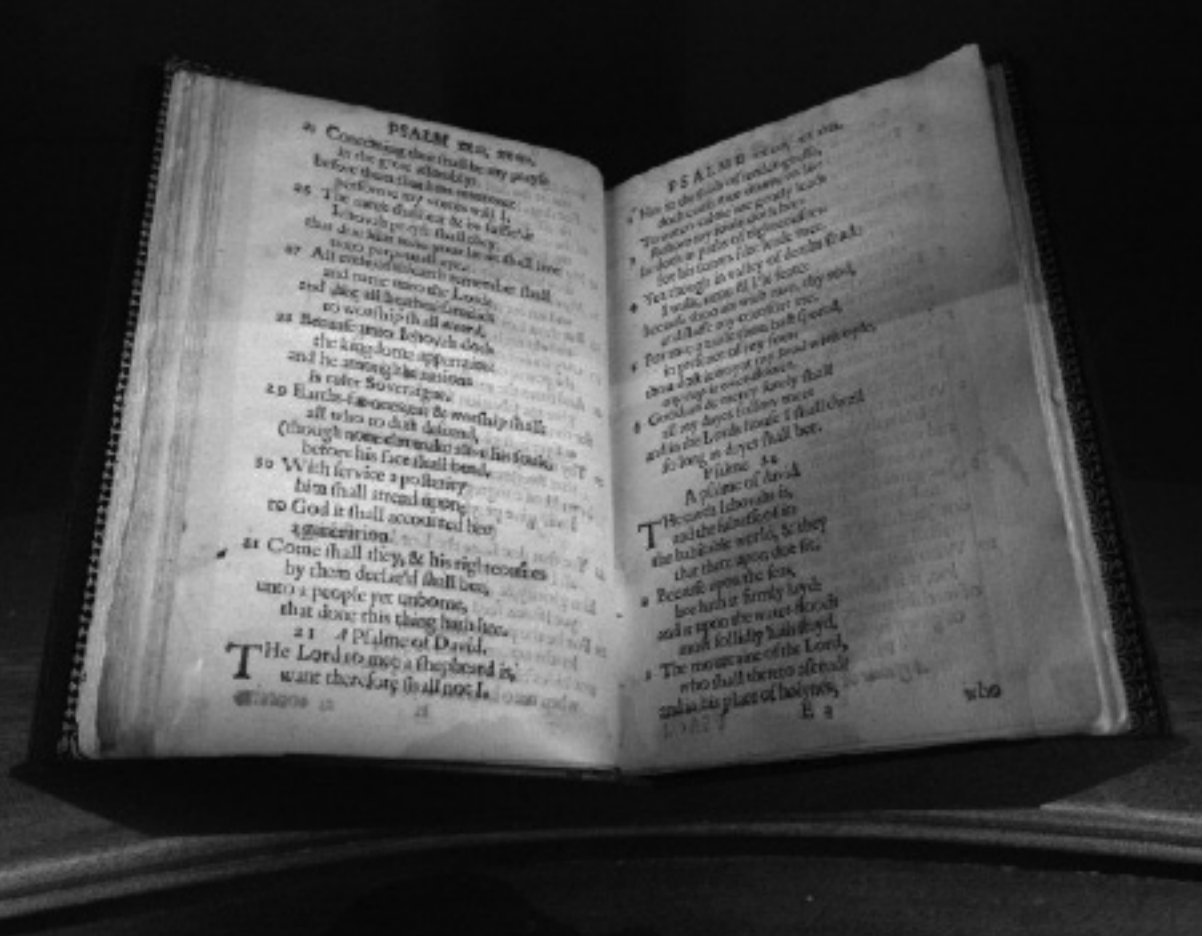 PSALM
25 Concerning thee shall be my prayse
in the great assembly:
before them that him reverence
performe my vowes will I.
26 The meek shall eat & be suffic'd
Iehovah prayse shall they
that doe him seek: your heart shall live
unto perpetuall aye.
27 All ends of th'earth remember shall
and turne unto the Lord:
and thee all heathen-families
to worship shall accord.
28 Because unto Iehovah doth
the kingdome appertaine:
and he among the nations
is ruler Soveraigne.
29 Earths-fat-ones, eat & worship shall:
all who to dust descend,
(though none can make alive his soule)
before his face shall bend.
30 With service a posterity
him shall attend upon;
to God it shall accounted bee
a generation.
31 Come shall they, & his righteousnes
by them declar'd shall bee,
unto a people yet unborne,
that done this thing hath hee.
23 A Psalme of David.
THe Lord to mee a shepheard is,
want therefore shall not I.
PSALM
2 Hee in the folds of tender-grasse,
doth cause mee downe to lie:
To waters calme me gently leads
3 Restore my soule doth hee:
he doth in paths of righteousnes:
for his names sake leade mee.
4 Yea though in valley of deaths shade
I walk, none ill I'le feare:
because thou art with mee, thy rod,
and staffe my comfort are.
5 For mee a table thou hast spread,
in presence of my foes:
thou dost annoynt my head with oyle,
my cup it over-flowes.
6 Goodnes & mercy surely shall
all my dayes follow mee:
and in the Lords house I shall dwell
so long as dayes shall bee.
Psalme 24
A psalme of david.
THe earth Iehovahs is,
and the fulnesse of it:
the habitable world, & they
that there upon doe sit.
2 Because upon the seas,
hee hath it firmly layd:
and it upon the water-floods
most sollidly hath stayd.
3 The mountaine of the Lord,
who shall thereto ascend?
and in his place of holynes,
E
who